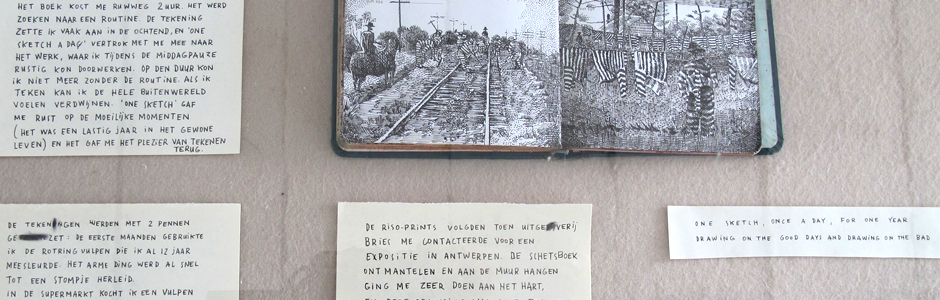 HET BOEK KOST ME RUWWEG 2 UUR. HET WERD
ZOEKEN NAAR EEN ROUTINE. DE TEKENING
ZETTE IK VAAK AAN IN DE OCHTEND, EN 'ONE
SKETCH A DAY' VERTROK MET ME MEE NAAR
HET WERK, WAAR IK TIJDENS DE MIDDAGPAUZE
RUSTIG KON DOORWERKEN. OP DEN DUUR KON
IK NIET MEER ZONDER DE ROUTINE. ALS IK
TEKEN KAN IK DE HELE BUITENWERELD
VOELEN VERDWIJNEN. 'ONE SKETCH' GAF
ME RUST OP DE MOEILIJKE MOMENTEN
(HET WAS EEN LASTIG JAAR IN HET GEWONE
LEVEN) EN HET GAF ME HET PLEZIER VAN TEKENEN
TERUG.
DE TEKENINGEN WERDEN MET 2 PENNEN
GE ZET: DE EERSTE MAANDEN GEBRUIKTE
IK DE ROTRING VULPEN DIE IK AL 12 JAAR
MEESLEURDE. HET ARME DING WERD AL SNEL
TOT EEN STOMPJE HERLEID.
IN DE SUPERMARKT KOCHT IK EEN VULPEN
DE RISO-PRINTS VOLGDEN TOEN UITGEVERIJ
BRIES ME CONTACTEERDE VOOR EEN
EXPOSITIE IN ANTWERPEN. DE SCHETSBOEK
ONTMANTELEN EN AAN DE MUUR HANGEN
GING ME ZEER DOEN AAN HET HART,
ONE SKETCH, ONCE A DAY, FOR ONE YEAR
DRAWING ON THE GOOD DAYS AND DRAWING ON THE BAD